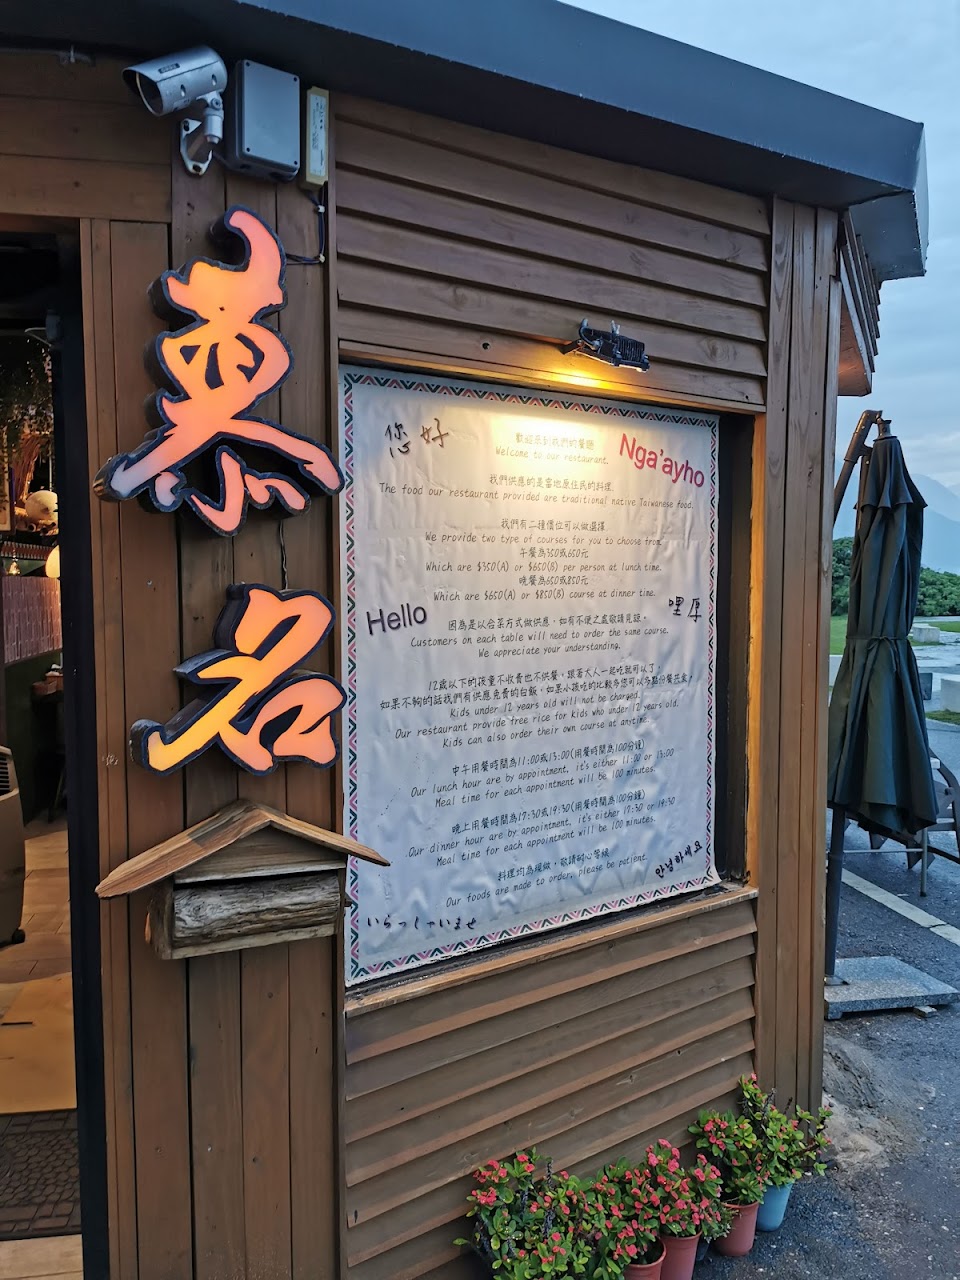 東
名
您好
歡迎來到我們的餐廳
Welcome to our restaurant.
Nga'ayho
我們供應的是當地原住民的料理
The food our restaurant provided are traditional native Taiwanese food.
我們有二種價位可以做選擇
We provide two type of courses for you to choose from
午餐為350或650元
Which are $350(A) or $650(B) per person at lunch time.
晚餐為650或850元
Which are $650(A) or $850(B) course at dinner time.
Hello
哩厚
因為是以合菜方式做供應，如有不便之處敬請見諒。
Customers on each table will need to order the same course.
We appreciate your understanding.
12歲以下的孩童不收費也不供餐，跟著大人一起吃就可以了，
如果不夠的話我們有供應免費的白飯，如果小孩吃的比較多您可以多點份餐
Kids under 12 years old will not be charged.
Our restaurant provide free rice for kids who under 12 years old.
Kids can also order their own course at anytime.
中午用餐時間為11:00或13:00(用餐時間為100分鐘)
Our lunch hour are by appointment, it's either 11:00 or 13:00
Meal time for each appointment will be 100 minutes.
晚上用餐時間為17:30或19:30(用餐時間為100分鐘)
Our dinner hour are by appointment, it's either 17:30 or 19:30
Meal time for each appointment will be 100 minutes.
料理均為現做，敬請耐心等候
Our foods are made to order, please be patient.
안녕하세요
いらっしゃいませ